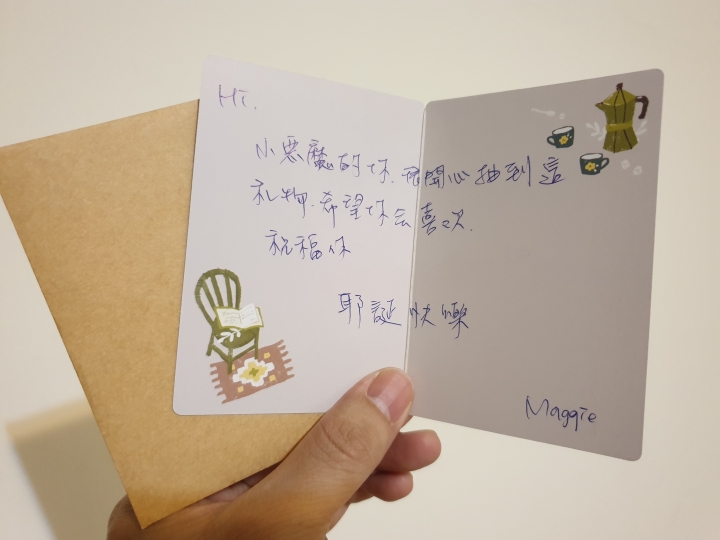 Hi.
小惡魔的你.很開心抽到這
礼物.希望你会喜欢.
祝福你
耶誕快樂
Maggie